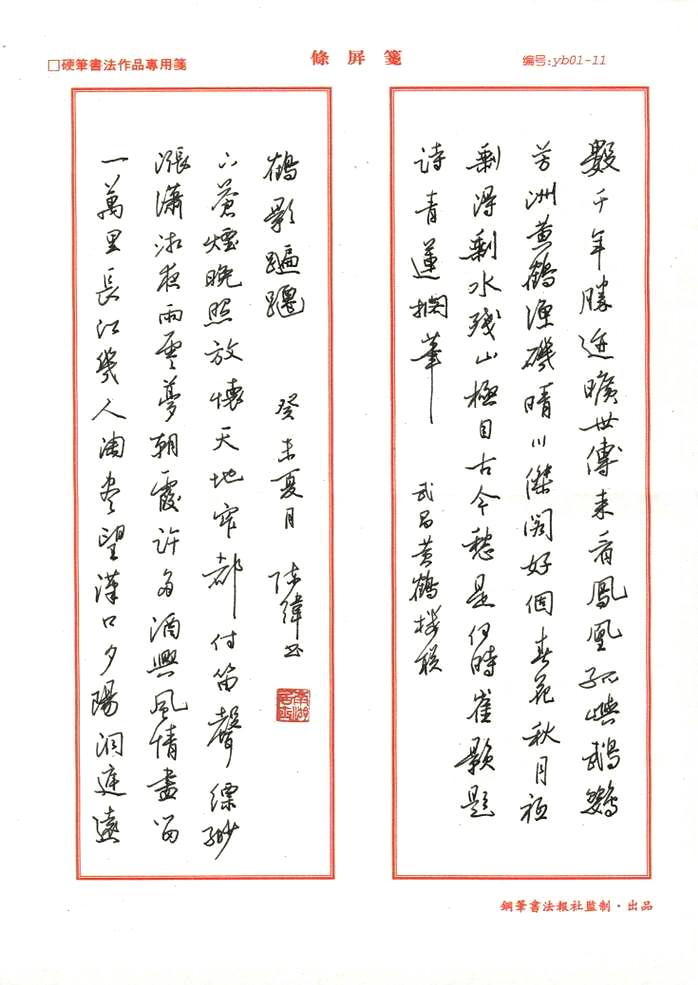 □硬筆書法作品專用箋
條屏箋
编号:yb01-11
數千年勝迹曠世傳來看鳳凰孤嶼鵡鸚
芳洲黄鶴漁磯晴川傑閣好個春花秋月祗
剩得剩水殘山極目古今愁是何時崔顥題
詩青蓮擱筆 武昌黄鶴樓联
一萬里長江幾人淘尽望漢口夕陽洞庭遠
漲瀟湘夜雨雲夢朝霞許多酒興風情盡留
下蒼煙晚照放懷天地窄都付笛聲縹緲
鶴影蹁躚 癸未夏月 陈緯书
鋼筆書法報社监制·出品